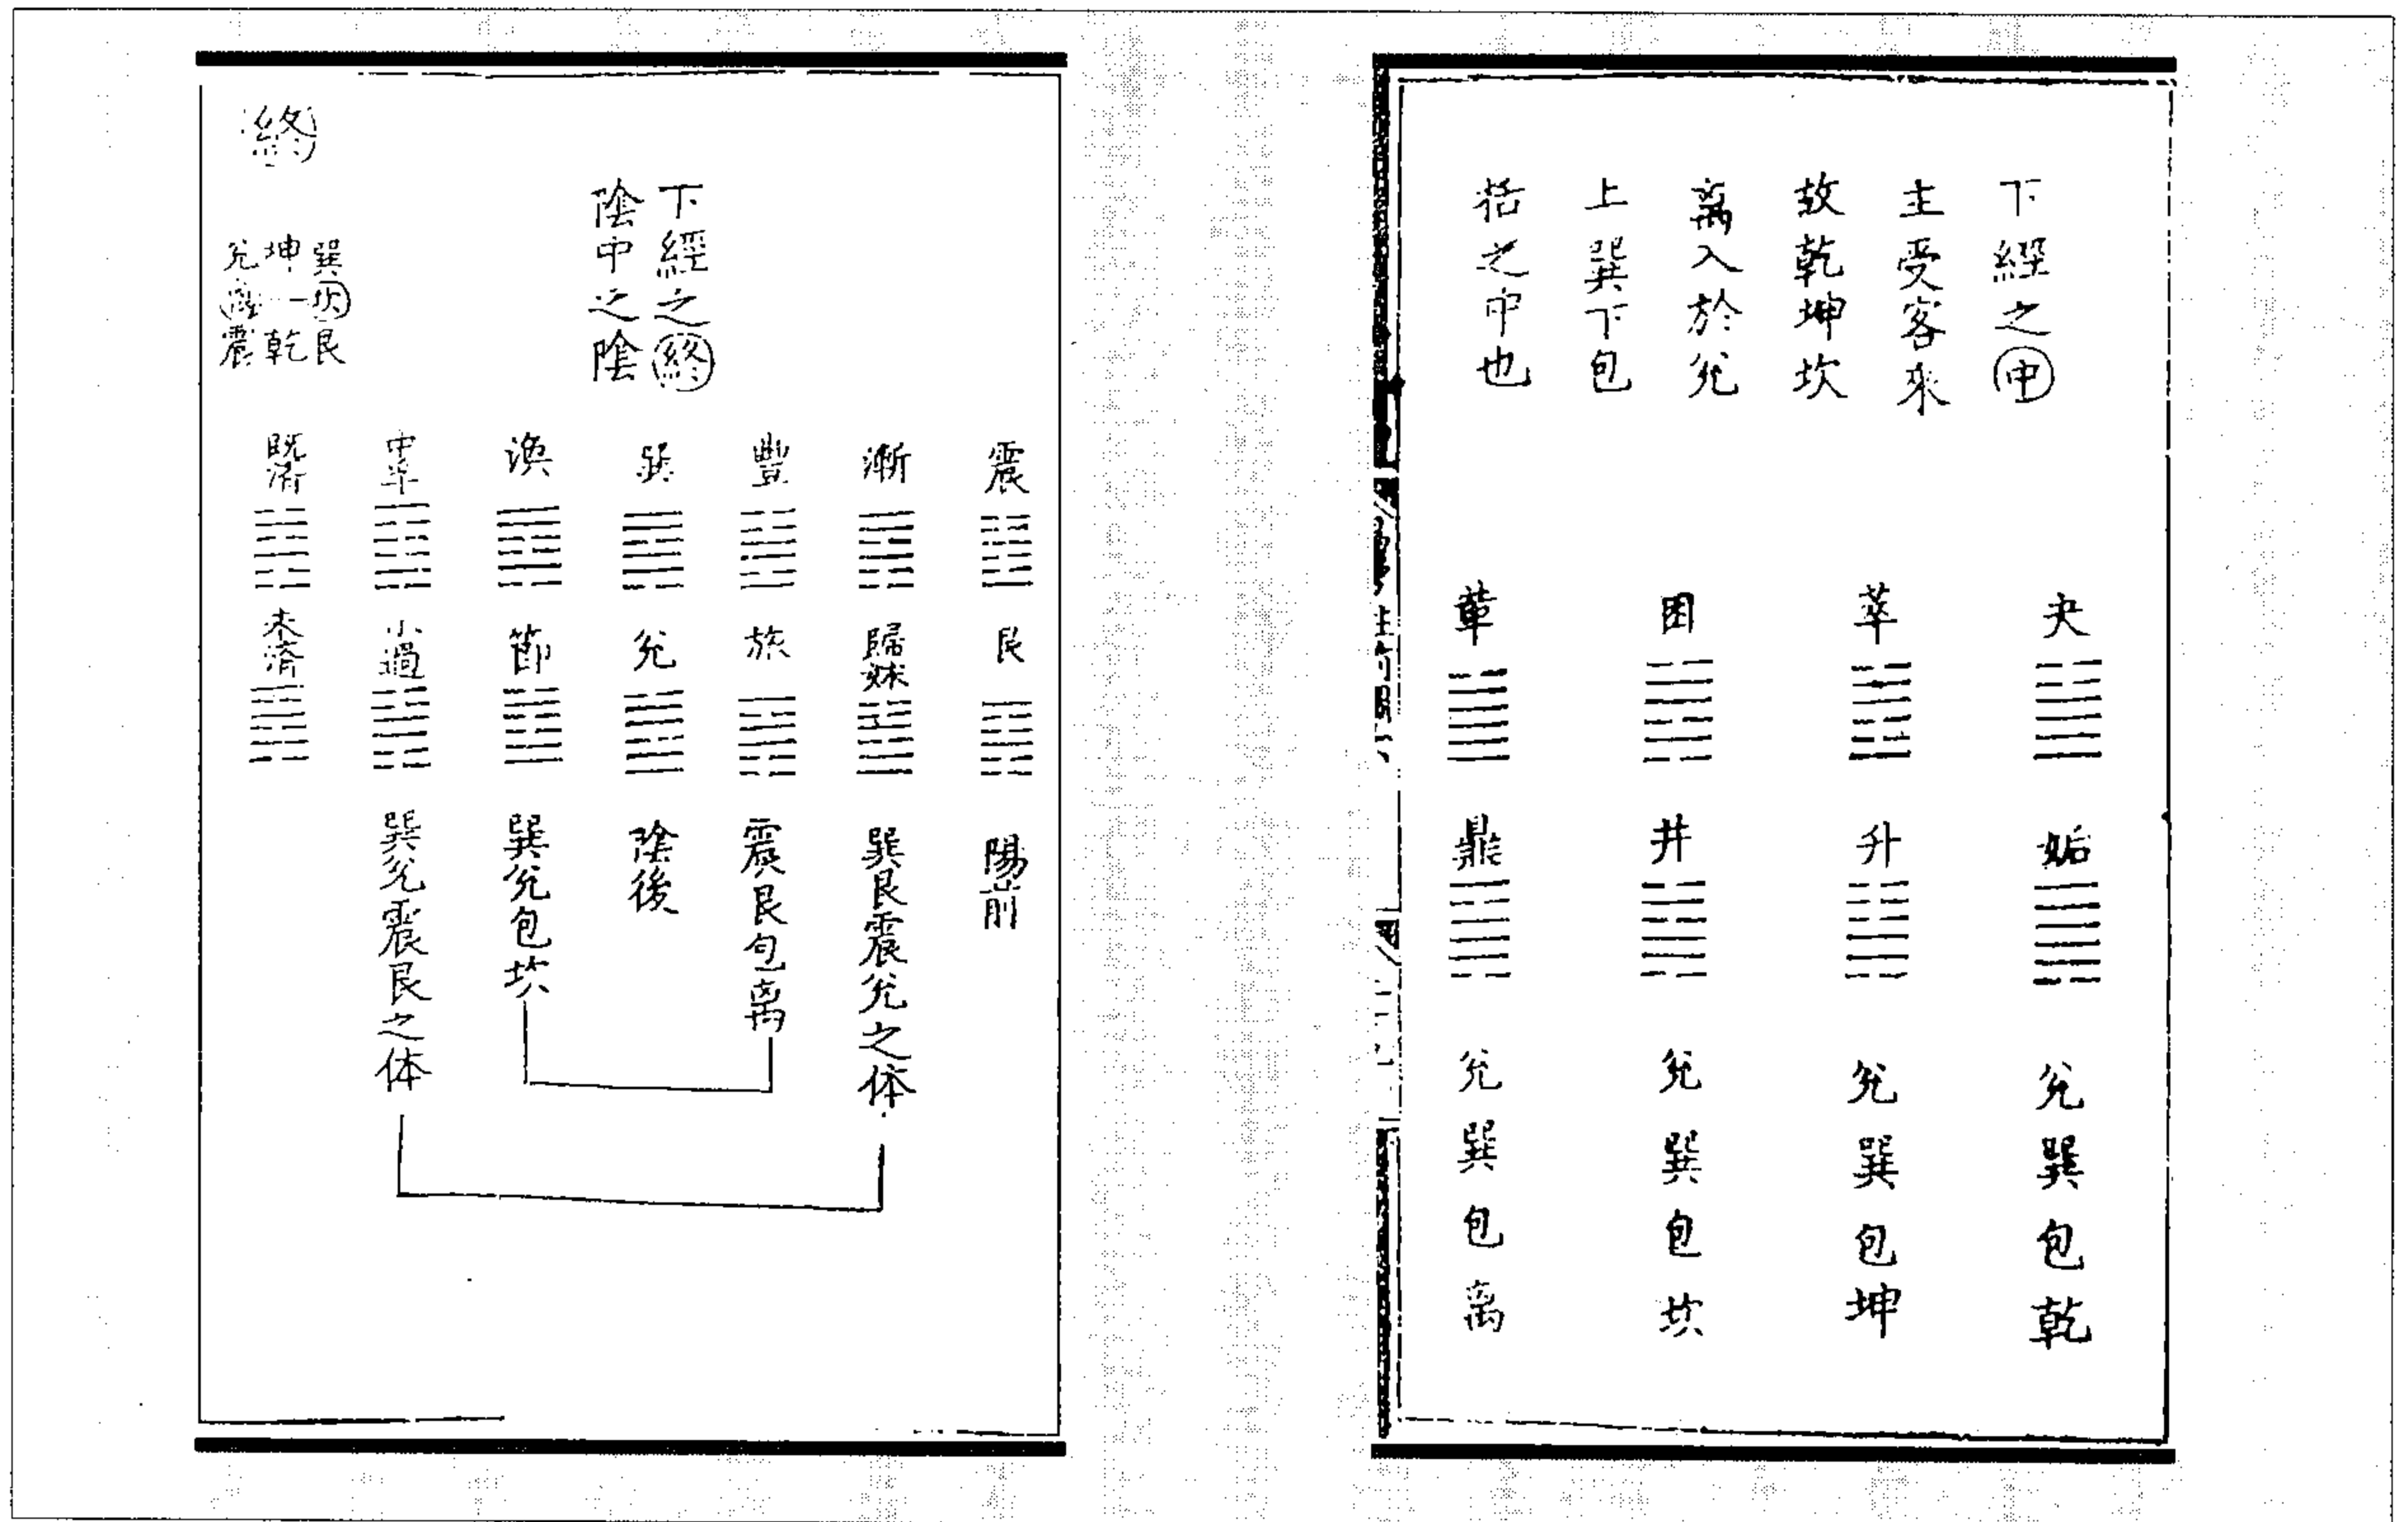 下經之中
主受客來
故乾坤坎
离入於兌
上巽下包
括之中也
夬 姤 兌巽包乾
萃 升 兌巽包坤
困 井 兌巽包坎
革 鼎 兌巽包离
下經之終
陰中之陰
震 艮 陽前
漸 歸妹 巽艮震兌之体
豐 旅 震艮包离
巽 兌 陰後
渙 節 巽兌包坎
中孚 小過 巽兌震艮之体
既濟 未濟
終
巽坎艮
坤一乾
兌离震